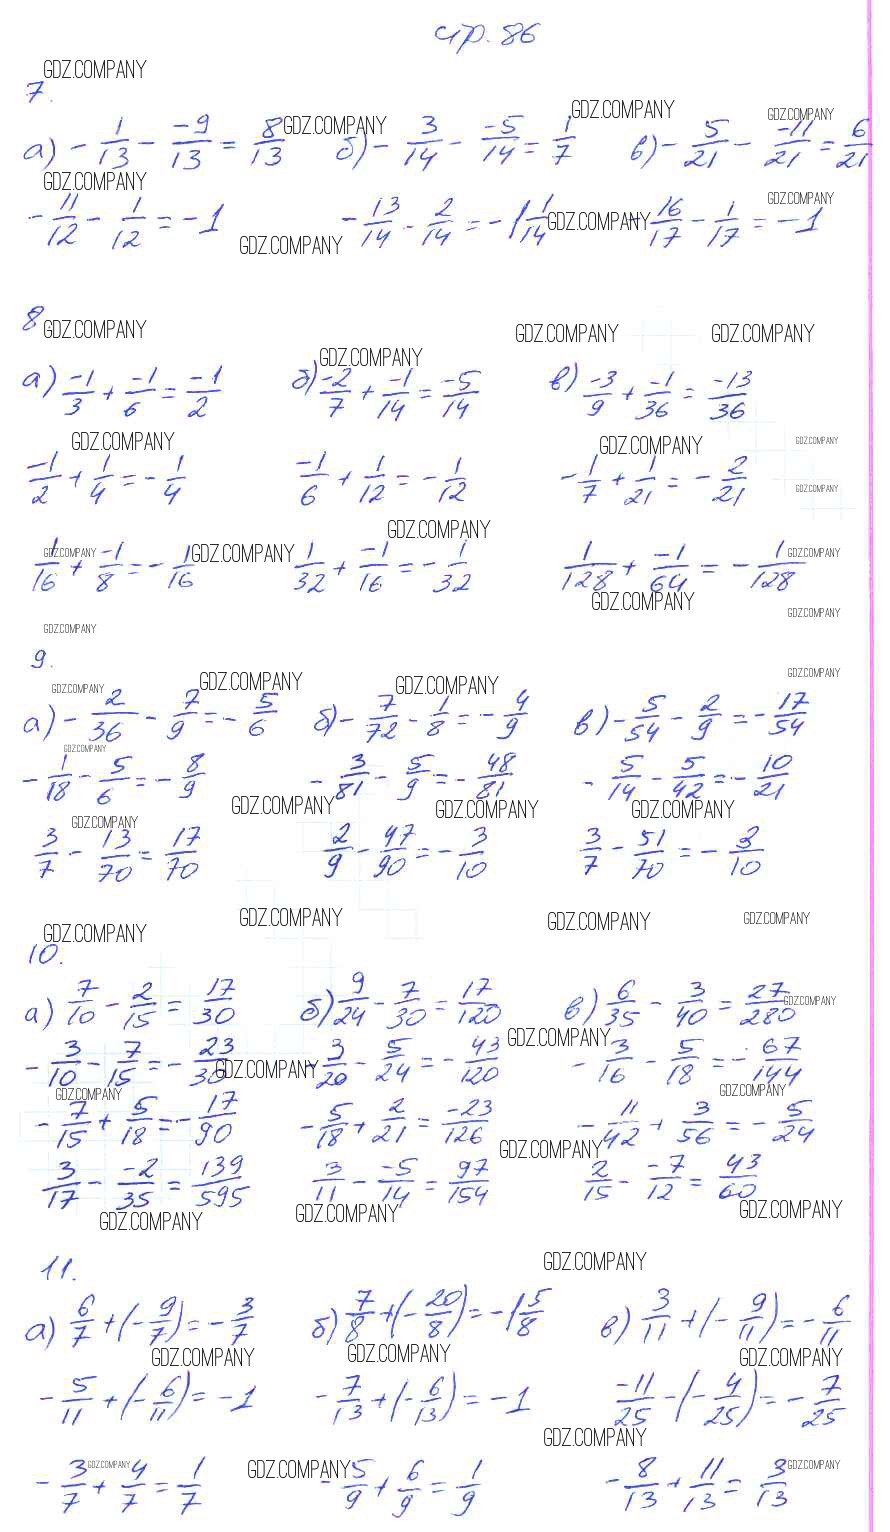 стр. 86
GDZ.COMPANY
7.
GDZ.COMPANY GDZ.COMPANY GDZ.COMPANY
а) -1/13 - -9/13 = 8/13 б) -3/14 - -5/14 = 1/7 в) -5/21 - -11/21 = 6/21
GDZ.COMPANY GDZ.COMPANY
-11/12 - 1/12 = -1 -13/14 - 2/14 = -1 1/14 GDZ.COMPANY -16/17 - 1/17 = -1
GDZ.COMPANY
8 GDZ.COMPANY GDZ.COMPANY GDZ.COMPANY
GDZ.COMPANY
а) -1/3 + -1/6 = -1/2 б) -2/7 + -1/14 = -5/14 в) -3/9 + -1/36 = -13/36
GDZ.COMPANY GDZ.COMPANY GDZ.COMPANY
-1/2 + 1/4 = -1/4 -1/6 + 1/12 = -1/12 -1/7 + 1/21 = -2/21
GDZ.COMPANY
GDZ.COMPANY
GDZ.COMPANY GDZ.COMPANY GDZ.COMPANY
1/16 + -1/8 = -1/16 1/32 + -1/16 = -1/32 1/128 + -1/64 = -1/128
GDZ.COMPANY GDZ.COMPANY
GDZ.COMPANY
9.
GDZ.COMPANY GDZ.COMPANY GDZ.COMPANY GDZ.COMPANY
а) -2/36 - 7/9 = -5/6 б) -7/72 - 1/8 = -4/9 в) -5/54 - 2/9 = -17/54
GDZ.COMPANY
-1/18 - 5/6 = -8/9 -3/81 - 5/9 = -48/81 -5/14 - 5/42 = -10/21
GDZ.COMPANY GDZ.COMPANY GDZ.COMPANY
GDZ.COMPANY
3/7 - 13/70 = 17/70 2/9 - 47/90 = -3/10 3/7 - 51/70 = -3/10
GDZ.COMPANY GDZ.COMPANY GDZ.COMPANY GDZ.COMPANY
10.
а) 7/10 - 2/15 = 17/30 б) 9/24 - 7/30 = 17/120 в) 6/35 - 3/40 = 27/280 GDZ.COMPANY
GDZ.COMPANY
-3/10 - 7/15 = -23/30 GDZ.COMPANY -3/20 - 5/24 = -43/120 -3/16 - 5/18 = -67/144
GDZ.COMPANY GDZ.COMPANY
-7/15 + 5/18 = -17/90 -5/18 + 2/21 = -23/126 -11/42 + 3/56 = -5/24
GDZ.COMPANY
3/17 - -2/35 = 139/595 3/11 - -5/14 = 97/154 2/15 - -7/12 = 43/60
GDZ.COMPANY GDZ.COMPANY GDZ.COMPANY
11.
GDZ.COMPANY
а) 6/7 + (-9/7) = -3/7 б) 7/8 + (-20/8) = -1 5/8 в) 3/11 + (-9/11) = -6/11
GDZ.COMPANY GDZ.COMPANY GDZ.COMPANY
-5/11 + (-6/11) = -1 -7/13 + (-6/13) = -1 -11/25 - (-4/25) = -7/25
GDZ.COMPANY
GDZ.COMPANY GDZ.COMPANY GDZ.COMPANY
-3/7 + 4/7 = 1/7 -5/9 + 6/9 = 1/9 -8/13 + 11/13 = 3/13